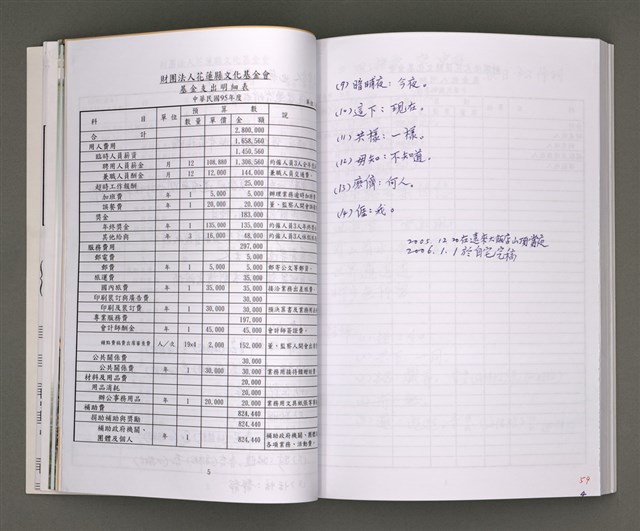 財團法人花蓮縣文化基金會
基金支出明細表
中華民國95年度
科 目 單位 預算數 說
數量 單價 金額
合 計 2,800,000
用人費用 1,658,560
臨時人員薪資 1,450,560
聘用人員薪金 月 12 108,880 1,306,560
兼職人員酬金 月 12 12,000 144,000 兼職人員交通費。
超時工作報酬 25,000
加班費 年 1 5,000 5,000
誤餐費 年 1 20,000 20,000
獎金 183,000
年終獎金 年 1 135,000 135,000
其他給與 年 3 16,000 48,000
服務費用 297,000
郵電費 5,000
郵費 年 1 5,000 5,000 郵寄公文等郵資。
旅運費 35,000
國內旅費 年 1 35,000 35,000 接洽業務出差旅費。
印刷裝訂與廣告費 30,000
印刷及裝訂費 年 1 30,000 30,000
專業服務費 197,000
會計師酬金 年 1 45,000 45,000 會計師簽證費。
人／次 19x4 2,000 152,000
公共關係費 30,000
公共關係費 年 1 30,000 30,000
材料及用品費 20,000
用品消耗 20,000
辦公事務用品 年 1 20,000 20,000
補助費 824,440
捐助補助與獎勵 824,440
補助政府機關、團體及個人 年 1 824,440 補助政府機關、團體
各項業務、活動費。
5
(9) 暗晡夜：今夜。
(10) 這下：現在。
(11) 共樣：一樣。
(12) 毋知：不知道。
(13) 麼儕：何人。
(14) 𠊎：我。
2005.12.20在遠來大飯店山頂當夜
2006.1.1於自宅完稿
59